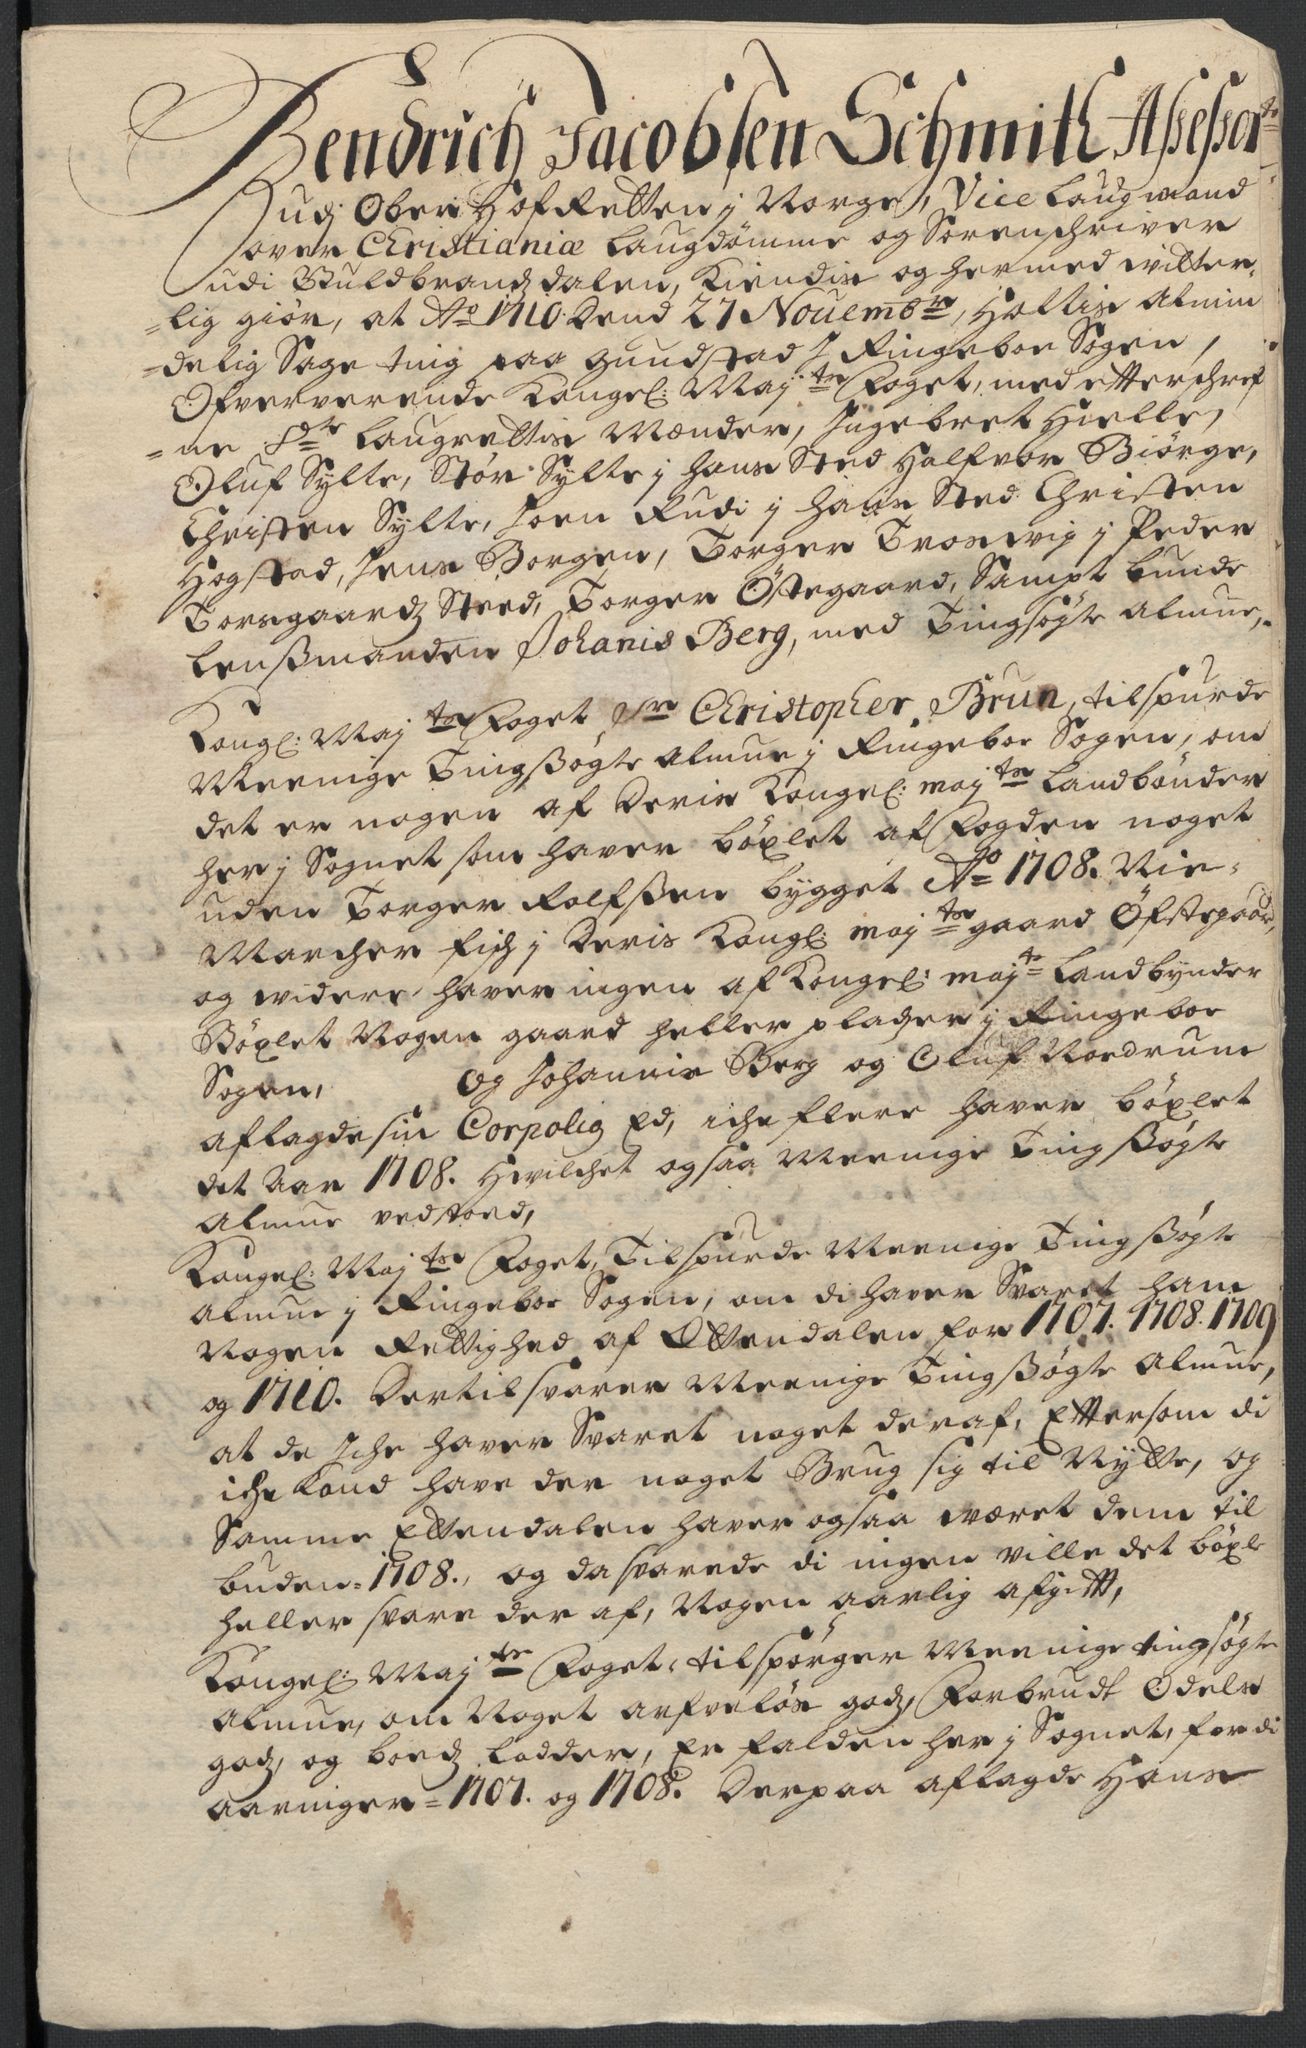 Hendrich Jacobsen Schmith Assessor
udj Ober Hof Retten j Norge, Vice Laugmand
over Christianiæ Laugdømme og Sorenschriver
udi Guldbrandzdalen, Kiendis og hermed witter-
=lig giør, at Ao 1710. Dend 27 Nouembr, Holtis Almin
=delig Sage ting paa Gundstad J Ringeboe Sogen,
Ofververende Kongel: Maj:ts Foget, med etterschref
=ne Laugrettis Mænder, Jngebret Hielle,
Oluf Sylte, Stør Sylte j hans Sted Halfvor Biørge,
Christen Sylte, Joen Rudi j hans Sted Christen
Hogstad, Jens Borgen, Torger Troswig j Peder
Torsgaardz Sted, Torger Østegaard, Sampt bunde
Lensßmanden Johanis Berg, med Tingsøgte Almue,
Kongl: Maj:ts Foget Sr Christopher Brun, tilspurde
Meenige Tingsøgte Almue j Ringeboe Sogen, om
det er nogen af Deris Kongel: maj:ts Landbønder
her j Sognet som haver bøxlet af Fogden noget
uden Torger Rolfßen bygget Ao 1708. Nie-
Marcher fisch j Deris Kongl: maj:ts gaard Øfstegaard,
og widere haver ingen af Kongel: maj:ts Landbynder
Bøxlet Nogen gaard heller pladzer j Ringeboe
Sogen, Og Johannis Berg og Oluf Nordrum
aflagde sin Corpolig Ed, iche flere haver bøxlet
det Aar 1708. Hvilchet ogsaa Meenige Tingsøgte
Almue vedstoed,
Kongel: Maj:ts Foget, Tilspurde Meenige Tingsøgte
Almue j Ringeboe Sogen, om di haver Svaret ham
Nogen Rettighed af Ettendalen for 1707. 1708. 1709
og 1710. Dertil svarer Meenige Tingsøgte Almue,
at de Jche haver Svaret noget deraf, Ettersom di
iche Kand have der noget Brug sig til Nytte, og
Samme Ettendalen haver ogsaa været dem til
buden=1708., og da svarede di ingen ville det bøxle
heller svare der af, Nogen aarlig afgift,
Kongel: Maj:ts Foget, tilspørger Meenige tingsøgte
Almue, om Noget arfveløs godz, Forbrudt Odels
godz, og boedz Lodder, Er falden her j Sognet, for di
aaringer=1707. og 1708. Derpaa aflagde Hans